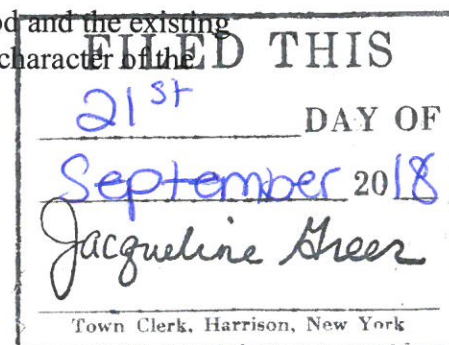 od and the existing
character of the
FILED THIS
21st DAY OF
September 2018
Jacqueline Greer
Town Clerk, Harrison, New York